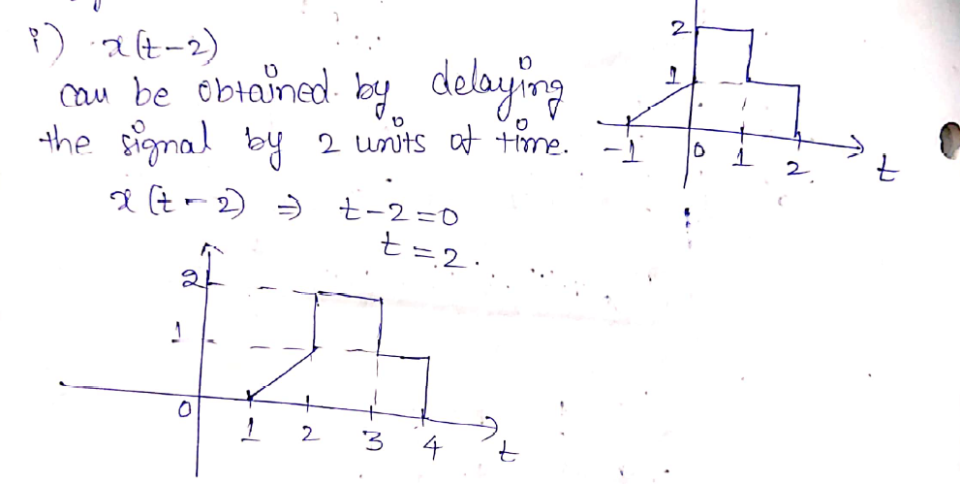 i) x(t-2)
can be obtained by delaying
the signal by 2 units of time.
x(t-2) ⇒ t-2=0
t=2.
2
1
-1 0 1 2
t
2
1
0 1 2 3 4
t